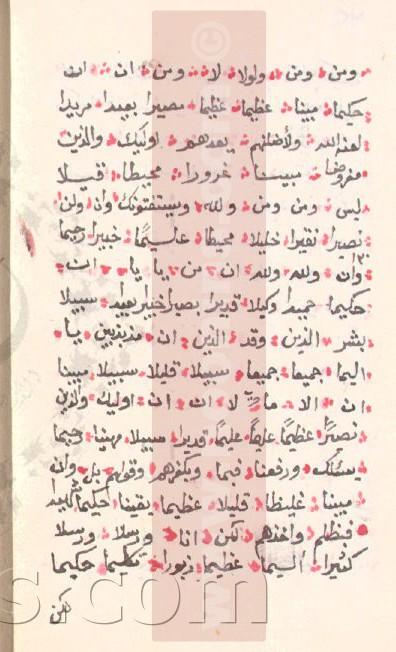 ومن ومن ولولا لا ومن ان ان
حكيما مبينا عظيما عظيما مصيرا بعيدا مريدا
لعنه الله ولأضلنهم يعدهم اوليك والذين
مفروضا مبينا غرورا محيطا قيلا
ليس ومن ومن ولله ويستفتونك وان ولن
نصيرا نقيرا خليلا محيطا عليما خبيرا رحيما
وان ولله ولله ان من يا يا ان
حكيما حميدا وكيلا قديرا بصيرا خبيرا بعيدا سبيلا
بشر الذين وقد الذين ان مذبذبين يا
اليما جميعا جميعا سبيلا قليلا سبيلا مبينا
ان الا ما لا ان ان اوليك والذين
نصيرا عظيما عليما عليما قديرا سبيلا مهينا رحيما
يسئلك ورفعنا فبما وبكفرهم وقولهم بل وان
مبينا غليظا قليلا عظيما يقينا حكيما شهيدا
فبظلم واخذهم لكن انا ورسلا ورسلا
كثيرا اليما عظيما زبورا تكليما حكيما
لكن
s.com